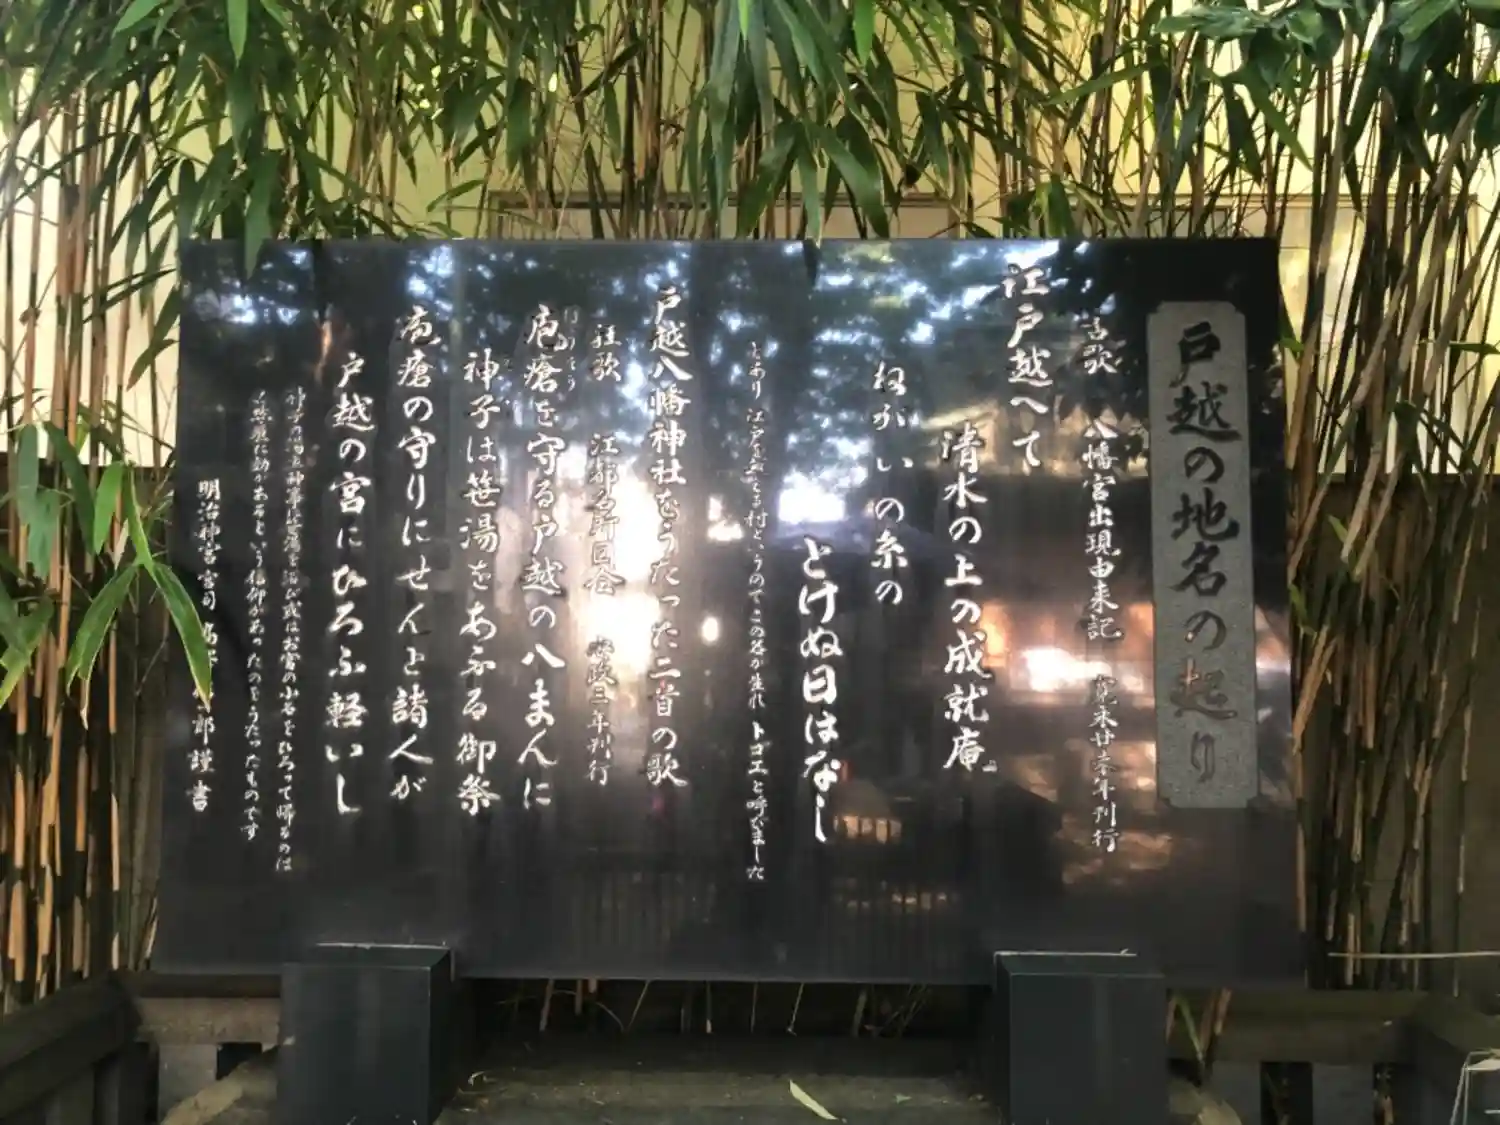 戸越の地名の起り
古歌 八幡宮出現由来記 寛永廿六年刊行
江戸越へて
清水の上の成就庵
ねがいの糸の
とけぬ日はなし
とあり 江戸を越える村というのでこの名が生れ トゴエと呼びました
戸越八幡神社をうたった二首の歌
狂歌 江都名所図会 安政三年刊行
疱瘡を守る戸越の八まんに
ほうそう
神子は笹湯をあふる御祭
疱瘡の守りにせんと諸人が
戸越の宮にひろふ軽いし
はお宮の小石をひろって帰るのは
があるという信仰があったのをうたったものです
明治神宮宮司 郎謹書